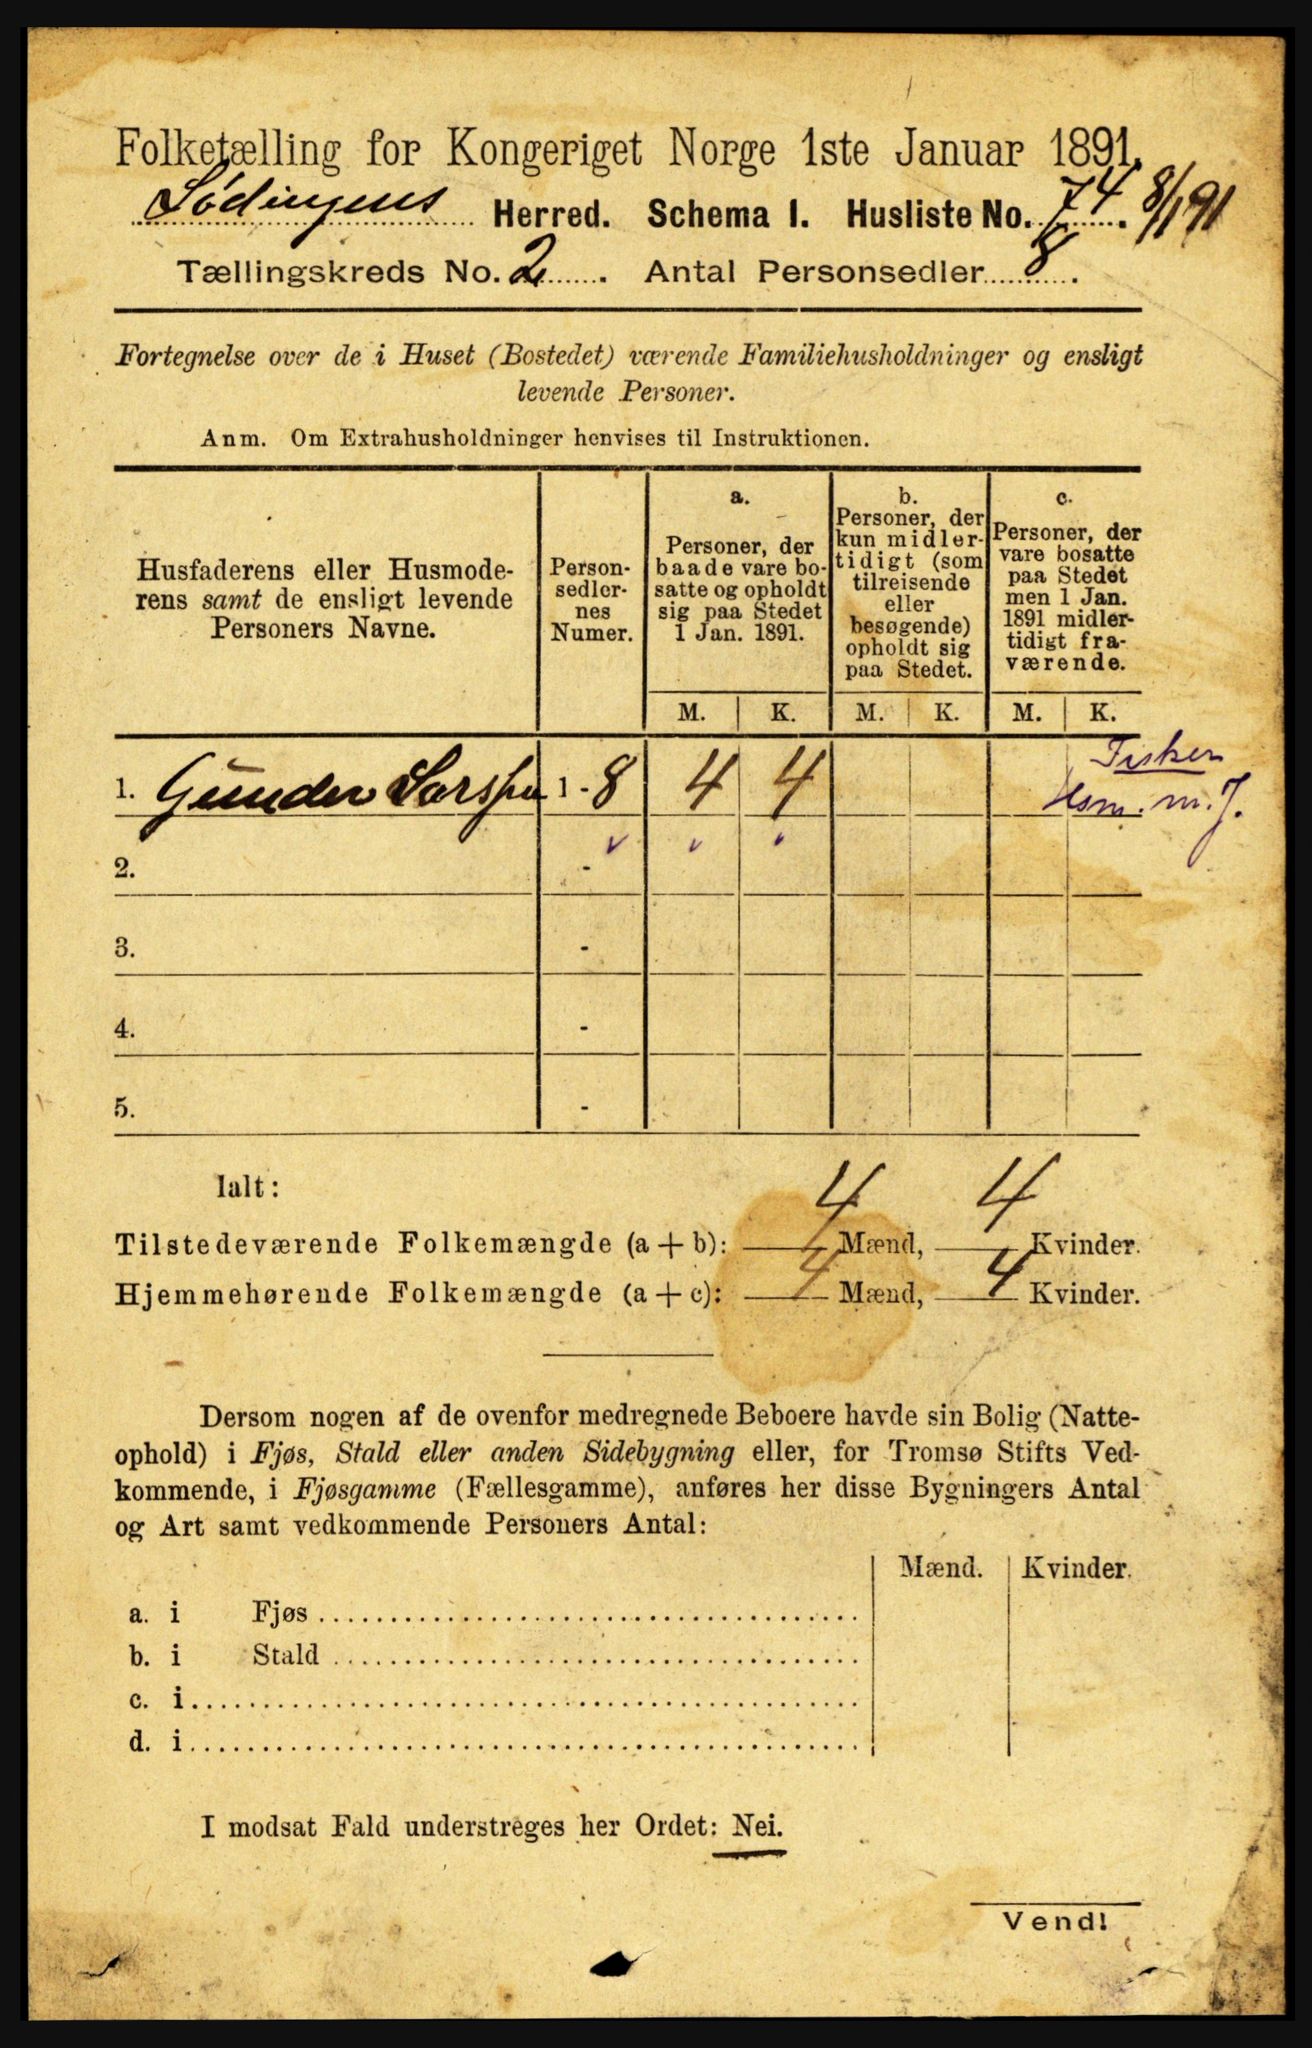 Folketælling for Kongeriget Norge 1ste Januar 1891.
Lødingens Herred. Schema I. Husliste No. 74. 8/1 91
Tællingskreds No. 2. Antal Personsedler 8.
Fortegnelse over de i Huset (Bostedet) værende Familiehusholdninger og ensligt
levende Personer.
Anm. Om Extrahusholdninger henvises til Instruktionen.
Husfaderens eller Husmode-
rens samt de ensligt levende
Personers Navne.
Person-
sedler-
nes
Numer.
a.
Personer, der
baade vare bo-
satte og opholdt
sig paa Stedet
1 Jan. 1891.
b.
Personer, der
kun midler-
tidigt (som
tilreisende
eller
besøgende)
opholdt sig
paa Stedet.
c.
Personer, der
vare bosatte
paa Stedet
men 1 Jan.
1891 midler-
tidigt fra-
værende.
M. K. M. K. M. K.
1. Gunder 1 - 8 4 4
Fisker
Hsm. m. J.
2. -
3. -
4. -
5. -
Ialt:
Tilstedeværende Folkemængde (a + b): 4 Mænd, 4 Kvinder.
Hjemmehørende Folkemængde (a + c): 4 Mænd, 4 Kvinder.
Dersom nogen af de ovenfor medregnede Beboere havde sin Bolig (Natte-
ophold) i Fjøs, Stald eller anden Sidebygning eller, for Tromsø Stifts Ved-
kommende, i Fjøsgamme (Fællesgamme), anføres her disse Bygningers Antal
og Art samt vedkommende Personers Antal:
Mænd. Kvinder.
a. i Fjøs
b. i Stald
c. i
d. i
I modsat Fald understreges her Ordet: Nei.
Vend!